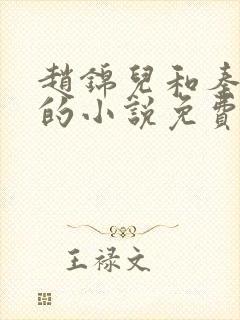 趙錦兒和秦
的小說免費
王禄文